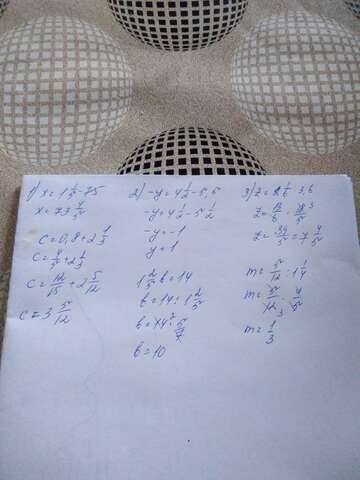 1) x = 1 1/5 - 75
x = 73 4/5
c = 0,8 + 2 1/3
c = 4/5 + 2 1/3
c = 12/15 + 2 5/12
c = 3 5/12
2) -y = 4 1/2 - 5,5
-y = 4 1/2 - 5 1/2
-y = -1
y = 1
1 2/5 b = 14
b = 14 : 1 2/5
b = 14 2 · 5/7
b = 10
3) z = 2 1/6 · 3,6
z = 13/6 · 18/5 3
z = 39/5 = 7 4/5
m = 5/12 : 1 1/4
m = 5/12 3 · 4/5
m = 1/3